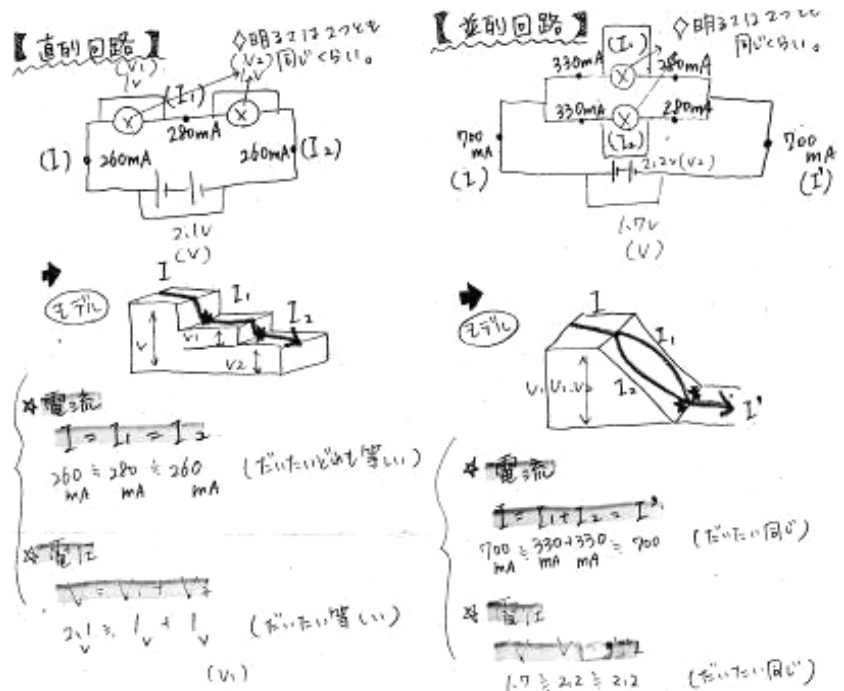 【直列回路】
◇明るさは2つとも
同じくらい。
(V₁)
1V
(V₂)
1V
(I₁)
280mA
(I)
260mA
260mA
(I₂)
2.1V
(V)
モデル
I
I₁
I₂
V
V₁
V₂
☆電流
I = I₁ = I₂
260mA ≒ 280mA ≒ 260mA (だいたいどれも等しい)
☆電圧
V = V₁ + V₂
2.1V ≒ 1V + 1V (だいたい等しい)
(V₁)
【並列回路】
◇明るさは2つとも
同じくらい。
(I₁)
330mA
280mA
330mA
280mA
(I₂)
700mA
(I)
700mA
(I')
2.2V(V₂)
1.7V
(V)
モデル
I
I₁
I₂
I'
V, V₁, V₂
☆電流
I = I₁ + I₂ = I'
700mA ≒ 330mA + 330mA ≒ 700 (だいたい同じ)
☆電圧
1.7 ≒ 2.2 ≒ 2.2 (だいたい同じ)